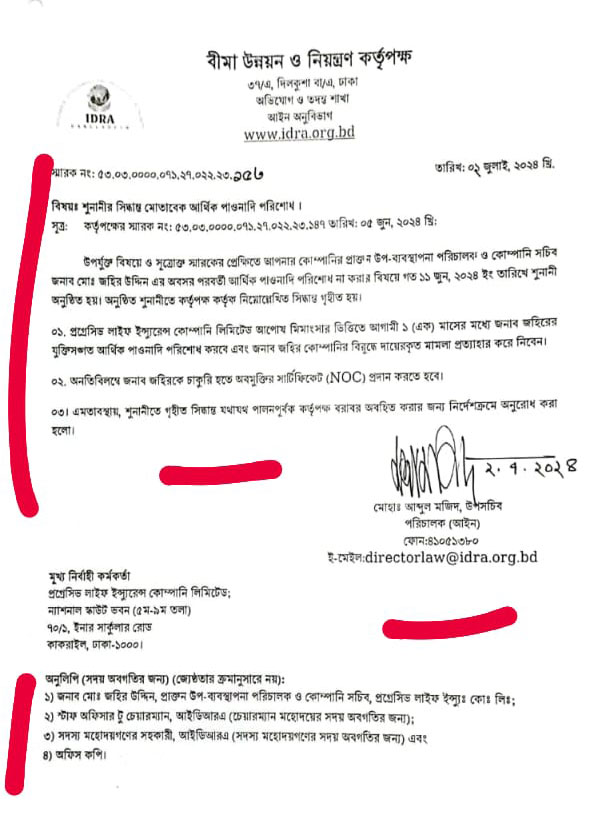 বীমা উন্নয়ন ও নিয়ন্ত্রণ কর্তৃপক্ষ
৩৭/এ, দিলকুশা বা/এ, ঢাকা
অভিযোগ ও তদন্ত শাখা
আইন অনুবিভাগ
www.idra.org.bd
IDRA
BANGLADESH
স্মারক নং: ৫৩.০৩.০০০০.০৭১.২৭.০২২.২৩.১৫৬
তারিখ: ০২ জুলাই, ২০২৪ খ্রি.
বিষয়ঃ শুনানীর সিদ্ধান্ত মোতাবেক আর্থিক পাওনাদি পরিশোধ।
সূত্র: কর্তৃপক্ষের স্মারক নং: ৫৩.০৩.০০০০.০৭১.২৭.০২২.২৩.১৪৭ তারিখ: ০৫ জুন, ২০২৪ খ্রি:
উপর্যুক্ত বিষয়ে ও সূত্রোক্ত স্মারকের প্রেক্ষিতে আপনার কোম্পানির প্রাক্তন উপ-ব্যবস্থাপনা পরিচালক ও কোম্পানি সচিব
জনাব মোঃ জহির উদ্দিন এর অবসর পরবর্তী আর্থিক পাওনাদি পরিশোধ না করার বিষয়ে গত ১১ জুন, ২০২৪ ইং তারিখে শুনানী
অনুষ্ঠিত হয়। অনুষ্ঠিত শুনানীতে কর্তৃপক্ষ কর্তৃক নিম্নোল্লেখিত সিদ্ধান্ত গৃহীত হয়।
০১. প্রগ্রেসিভ লাইফ ইন্স্যুরেন্স কোম্পানি লিমিটেড আপোষ মিমাংসার ভিত্তিতে আগামী ১ (এক) মাসের মধ্যে জনাব জহিরের
যুক্তিসঙ্গত আর্থিক পাওনাদি পরিশোধ করবে এবং জনাব জহির কোম্পানির বিরুদ্ধে দায়েরকৃত মামলা প্রত্যাহার করে নিবেন।
০২. অনতিবিলম্বে জনাব জহিরকে চাকুরি হতে অবমুক্তির সার্টিফিকেট (NOC) প্রদান করতে হবে।
০৩। এমতাবস্থায়, শুনানীতে গৃহীত সিদ্ধান্ত যথাযথ পালনপূর্বক কর্তৃপক্ষ বরাবর অবহিত করার জন্য নির্দেশক্রমে অনুরোধ করা
হলো।
২.৭.২০২৪
মোহাঃ আব্দুল মজিদ, উপসচিব
পরিচালক (আইন)
ফোন:৪১০৫১৩৮০
ই-মেইল:directorlaw@idra.org.bd
মুখ্য নির্বাহী কর্মকর্তা
প্রগ্রেসিভ লাইফ ইন্স্যুরেন্স কোম্পানি লিমিটেড;
ন্যাশনাল স্কাউট ভবন (৫ম-৯ম তলা)
৭০/১, ইনার সার্কুলার রোড
কাকরাইল, ঢাকা-১০০০।
অনুলিপি (সদয় অবগতির জন্য) (জ্যেষ্ঠতার ক্রমানুসারে নয়):
১) জনাব মোঃ জহির উদ্দিন, প্রাক্তন উপ-ব্যবস্থাপনা পরিচালক ও কোম্পানি সচিব, প্রগ্রেসিভ লাইফ ইন্স্যুঃ কোঃ লিঃ;
২) স্টাফ অফিসার টু চেয়ারম্যান, আইডিআরএ (চেয়ারম্যান মহোদয়ের সদয় অবগতির জন্য);
৩) সদস্য মহোদয়গণের সহকারী, আইডিআরএ (সদস্য মহোদয়গণের সদয় অবগতির জন্য) এবং
৪) অফিস কপি।